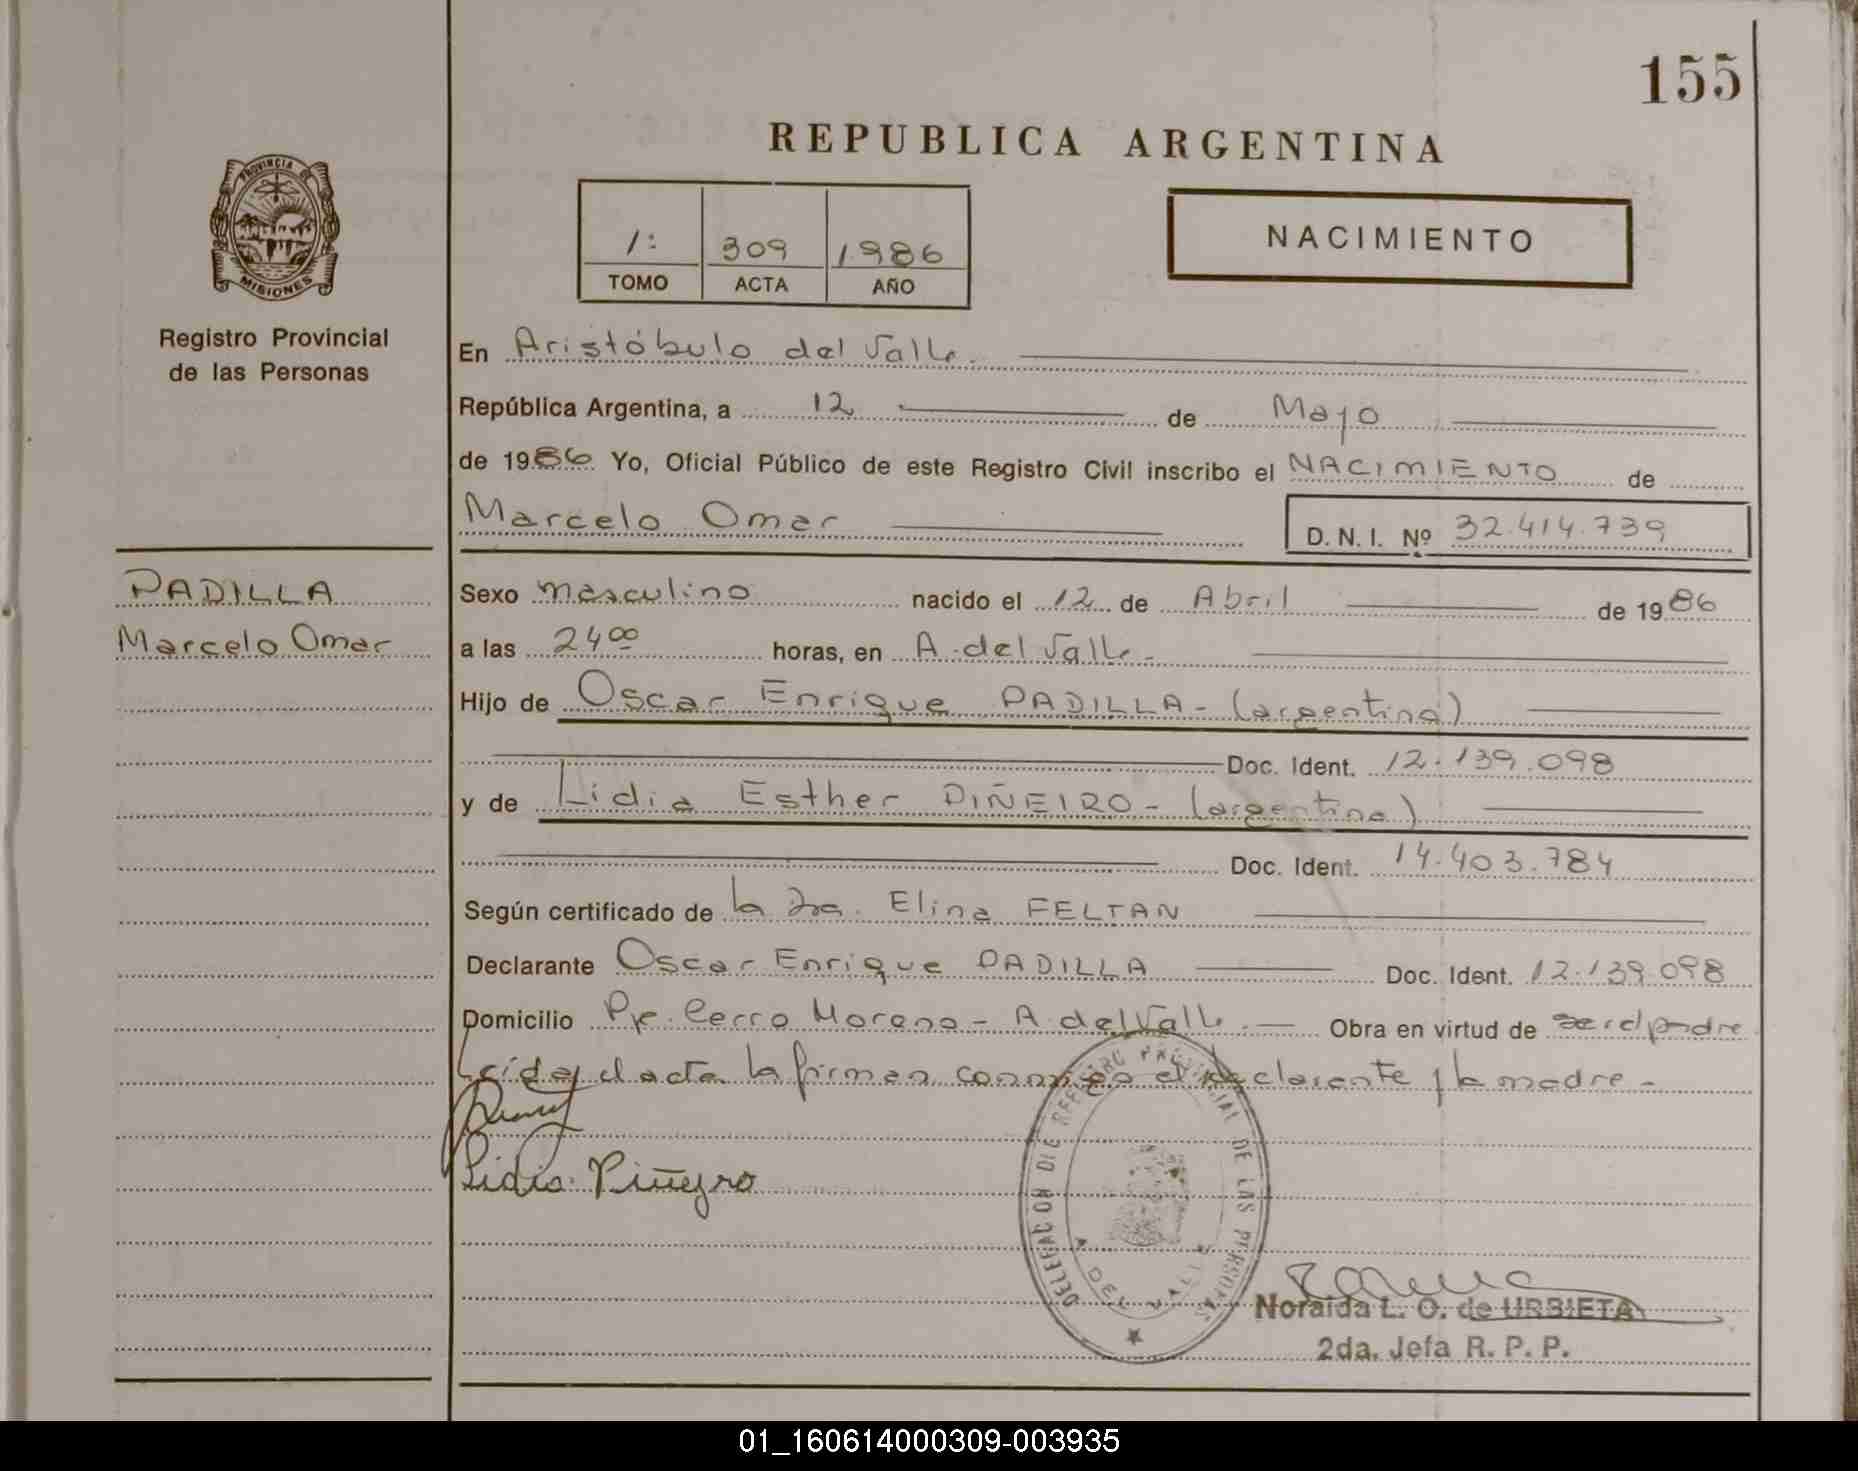 155
REPUBLICA ARGENTINA
PROVINCIA DE
MISIONES
Registro Provincial
de las Personas
1: 309 1986
TOMO ACTA AÑO
NACIMIENTO
En Aristóbulo del Valle.
República Argentina, a 12 de Mayo
de 1986 Yo, Oficial Público de este Registro Civil inscribo el NACIMIENTO de
Marcelo Omar D.N.I. Nº 32.414.739
PADILLA
Marcelo Omar
Sexo masculino nacido el 12 de Abril de 1986
a las 24 00 horas, en A. del Valle -
Hijo de Oscar Enrique PADILLA - (argentina)
Doc. Ident. 12.139.098
y de Lidia Esther PIÑEIRO - (argentina)
Doc. Ident. 14.403.784
Según certificado de la Dra. Elina FELTAN
Declarante Oscar Enrique PADILLA Doc. Ident. 12.139.098
Domicilio Pje. Cerro Moreno - A. del Valle. - Obra en virtud de ser el padre.
Leída el acta la firman conmigo el declarante y la madre -
Lidia Piñeyro
DELEGACION DE REGISTRO PROVINCIAL DE LAS PERSONAS
A. DEL VALLE
Noraida L. O. de URBIETA
2da. Jefa R. P. P.
01_160614000309-003935